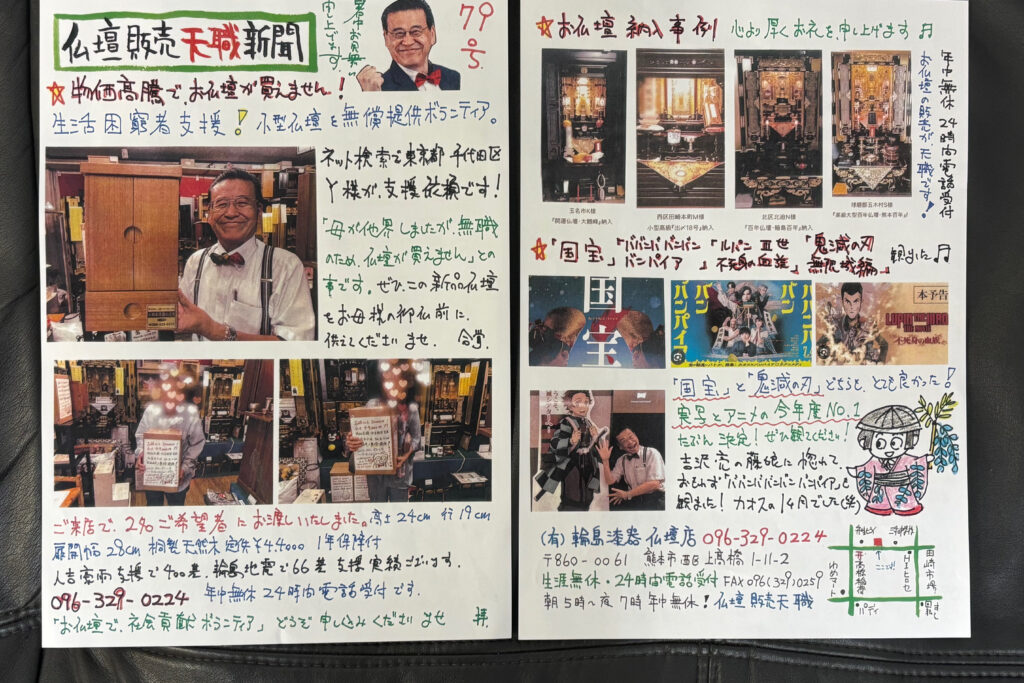 仏壇販売天職新聞
暑中お見舞い
申し上げます。
79
号.
☆物価高騰でお仏壇が買えません。!
生活困窮者支援!小型仏壇を無償提供ボランティア。
ネット検索で東京都千代田区
Y様が、支援依頼です!
「母が他界しましたが、無職
のため、仏壇が買えません」との
事です。ぜひこの新品仏壇
をお母様の御仏前に、
供えてくださいませ、合掌.
ご来店で、2名ご希望者にお渡しいたしました。高土24cm 行19cm
扉開幅28cm 桐製天然木 定価¥4,4000 1年保障付
人吉豪雨支援で400基、輪島地震で66基支援実績ございます.
096-329-0224 年中無休24時間電話受付です.
「お仏壇で、社会貢献ボランティア」どうぞ申し込みくださいませ
☆お仏壇納入事例 心より厚くお礼を申し上げます♬
年中無休24時間電話受付
お仏壇の販売が、天職です!
玉名市K様
『開運仏壇・大鶴峰』納入
西区田崎本町M様
小型高級『出〆18号』納入
北区北迫N様
『百年仏壇・輪島百年』納入
球磨郡五木村S様
『最級大型百年仏壇・熊本百年』
☆「国宝」「ババンババンバンバンパイア」「ルパン三世 不死身の血族」「鬼滅の刃 無限城編」観ました♬
国宝
ババンババンバンバンパイア
本予告
LUPIN THE IIIRD
不死身の血族
「国宝」と「鬼滅の刃」どちらも、とても良かった!
実写とアニメの今年度No.1
たぶん決定!ぜひ観てください!
吉沢亮の藤娘に惚れて、
おもわず「ババンババンバンバンパイア」も
観ました!カオスの1ヶ月でした(笑)
(有)輪島漆器仏壇店 096-329-0224
〒860-0061 熊本市西区上高橋1-11-2
生涯無休・24時間電話受付 FAX096(329)0259
朝5時〜夜7時年中無休!仏壇販売天職
高橋稲荷
ゆめマート
ここです!
田崎市場